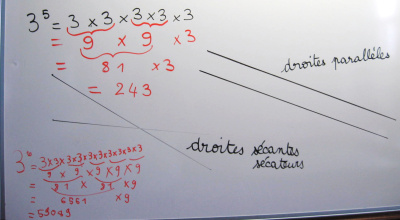 3⁵ = 3 × 3 × 3 × 3 × 3
= 9 × 9 × 3
= 81 × 3
= 243
droites parallèles
droites sécantes
sécateurs
= 3×3×3×3×3×3×3×3×3×3
= 9 × 9 × 9 × 9 × 9
= 81 × 81 × 9
= 6561 × 9
= 59049